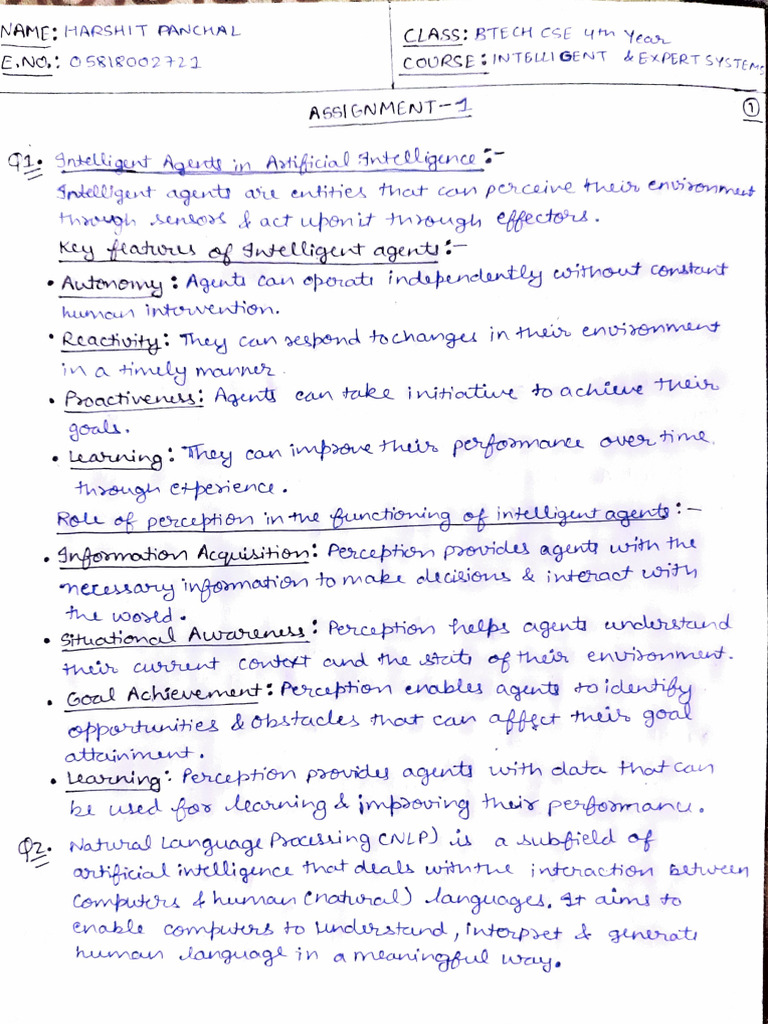 NAME: HARSHIT PANCHAL
CLASS: BTECH CSE 4th Year
E.NO.: 05818002721
COURSE: INTELLIGENT & EXPERT SYSTEMS
ASSIGNMENT-1
1
Q1. Intelligent Agents in Artificial Intelligence:-
Intelligent agents are entities that can perceive their environment
through sensors & act upon it through effectors.
Key features of Intelligent agents:-
• Autonomy: Agents can operate independently without constant
human intervention.
• Reactivity: They can respond to changes in their environment
in a timely manner.
• Proactiveness: Agents can take initiative to achieve their
goals.
• Learning: They can improve their performance over time
through experience.
Role of perception in the functioning of intelligent agents:-
• Information Acquisition: Perception provides agents with the
necessary information to make decisions & interact with
the world.
• Situational Awareness: Perception helps agents understand
their current context and the state of their environment.
• Goal Achievement: Perception enables agents to identify
opportunities & obstacles that can affect their goal
attainment.
• Learning: Perception provides agents with data that can
be used for learning & improving their performance.
Q2. Natural Language Processing (NLP) is a subfield of
artificial intelligence that deals with the interaction between
computers & human (natural) languages. It aims to
enable computers to understand, interpret & generate
human language in a meaningful way.